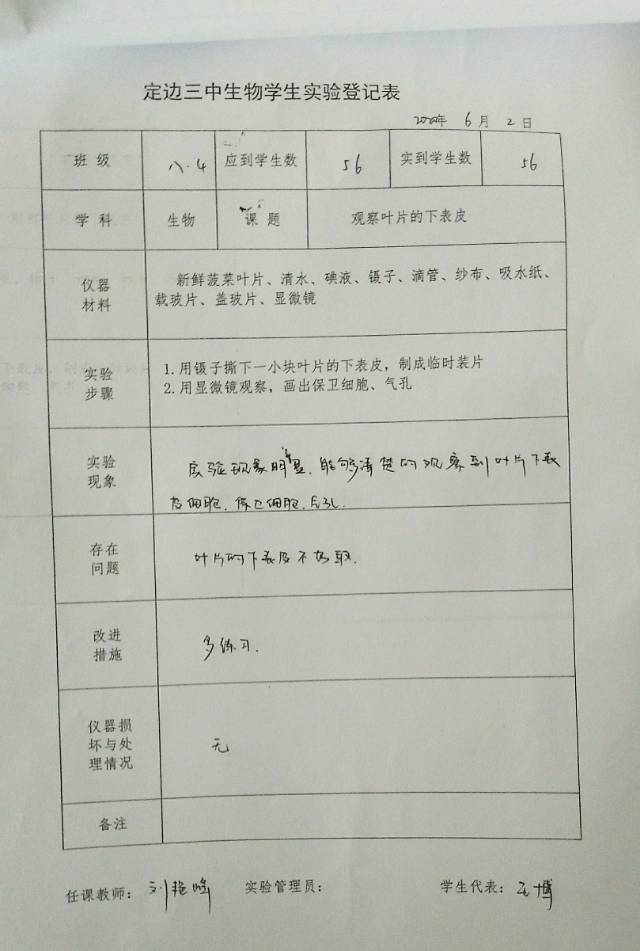 定边三中生物学生实验登记表
2020年 6月 2日
班级 八·4 应到学生数 56 实到学生数 56
学科 生物 课题 观察叶片的下表皮
仪器材料 新鲜菠菜叶片、清水、碘液、镊子、滴管、纱布、吸水纸、
载玻片、盖玻片、显微镜
实验步骤 1.用镊子撕下一小块叶片的下表皮，制成临时装片
2.用显微镜观察，画出保卫细胞、气孔
实验现象 实验现象明显，能够清楚的观察到叶片下表
皮细胞，保卫细胞，气孔.
存在问题 叶片的下表皮不好取.
改进措施 多练习.
仪器损坏与处理情况 无
备注
任课教师：刘艳 实验管理员： 学生代表：博